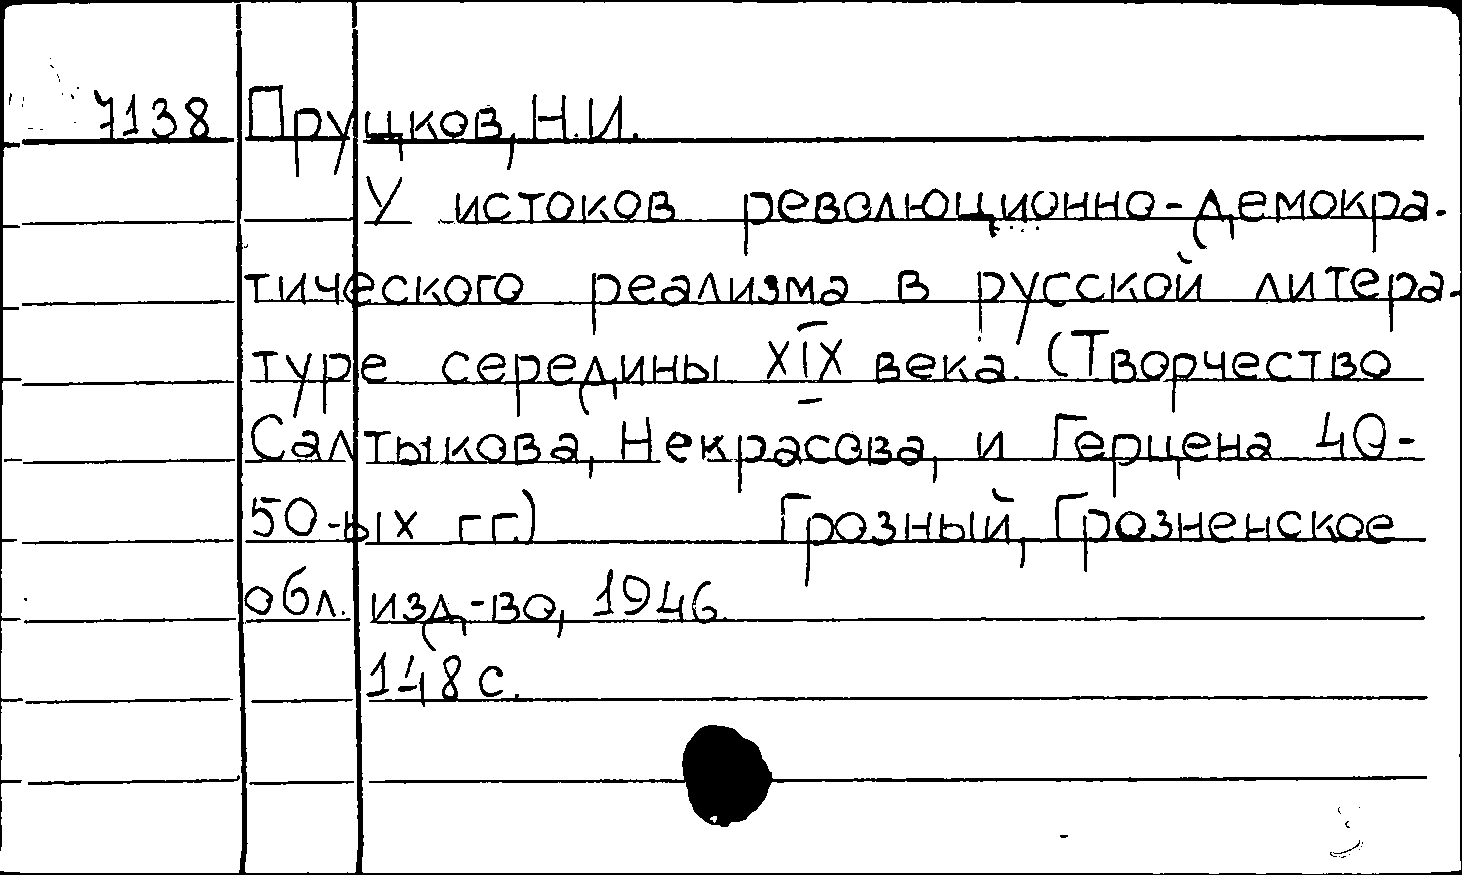 7138 Пруцков, Н.И.
У истоков революционно-демокра-
тического реализма в русской литера-
туре середины XIX века. (Творчество
Салтыкова, Некрасова, и Герцена 40-
50-ых гг.) Грозный, Грозненское
обл. изд-во, 1946.
148 с.